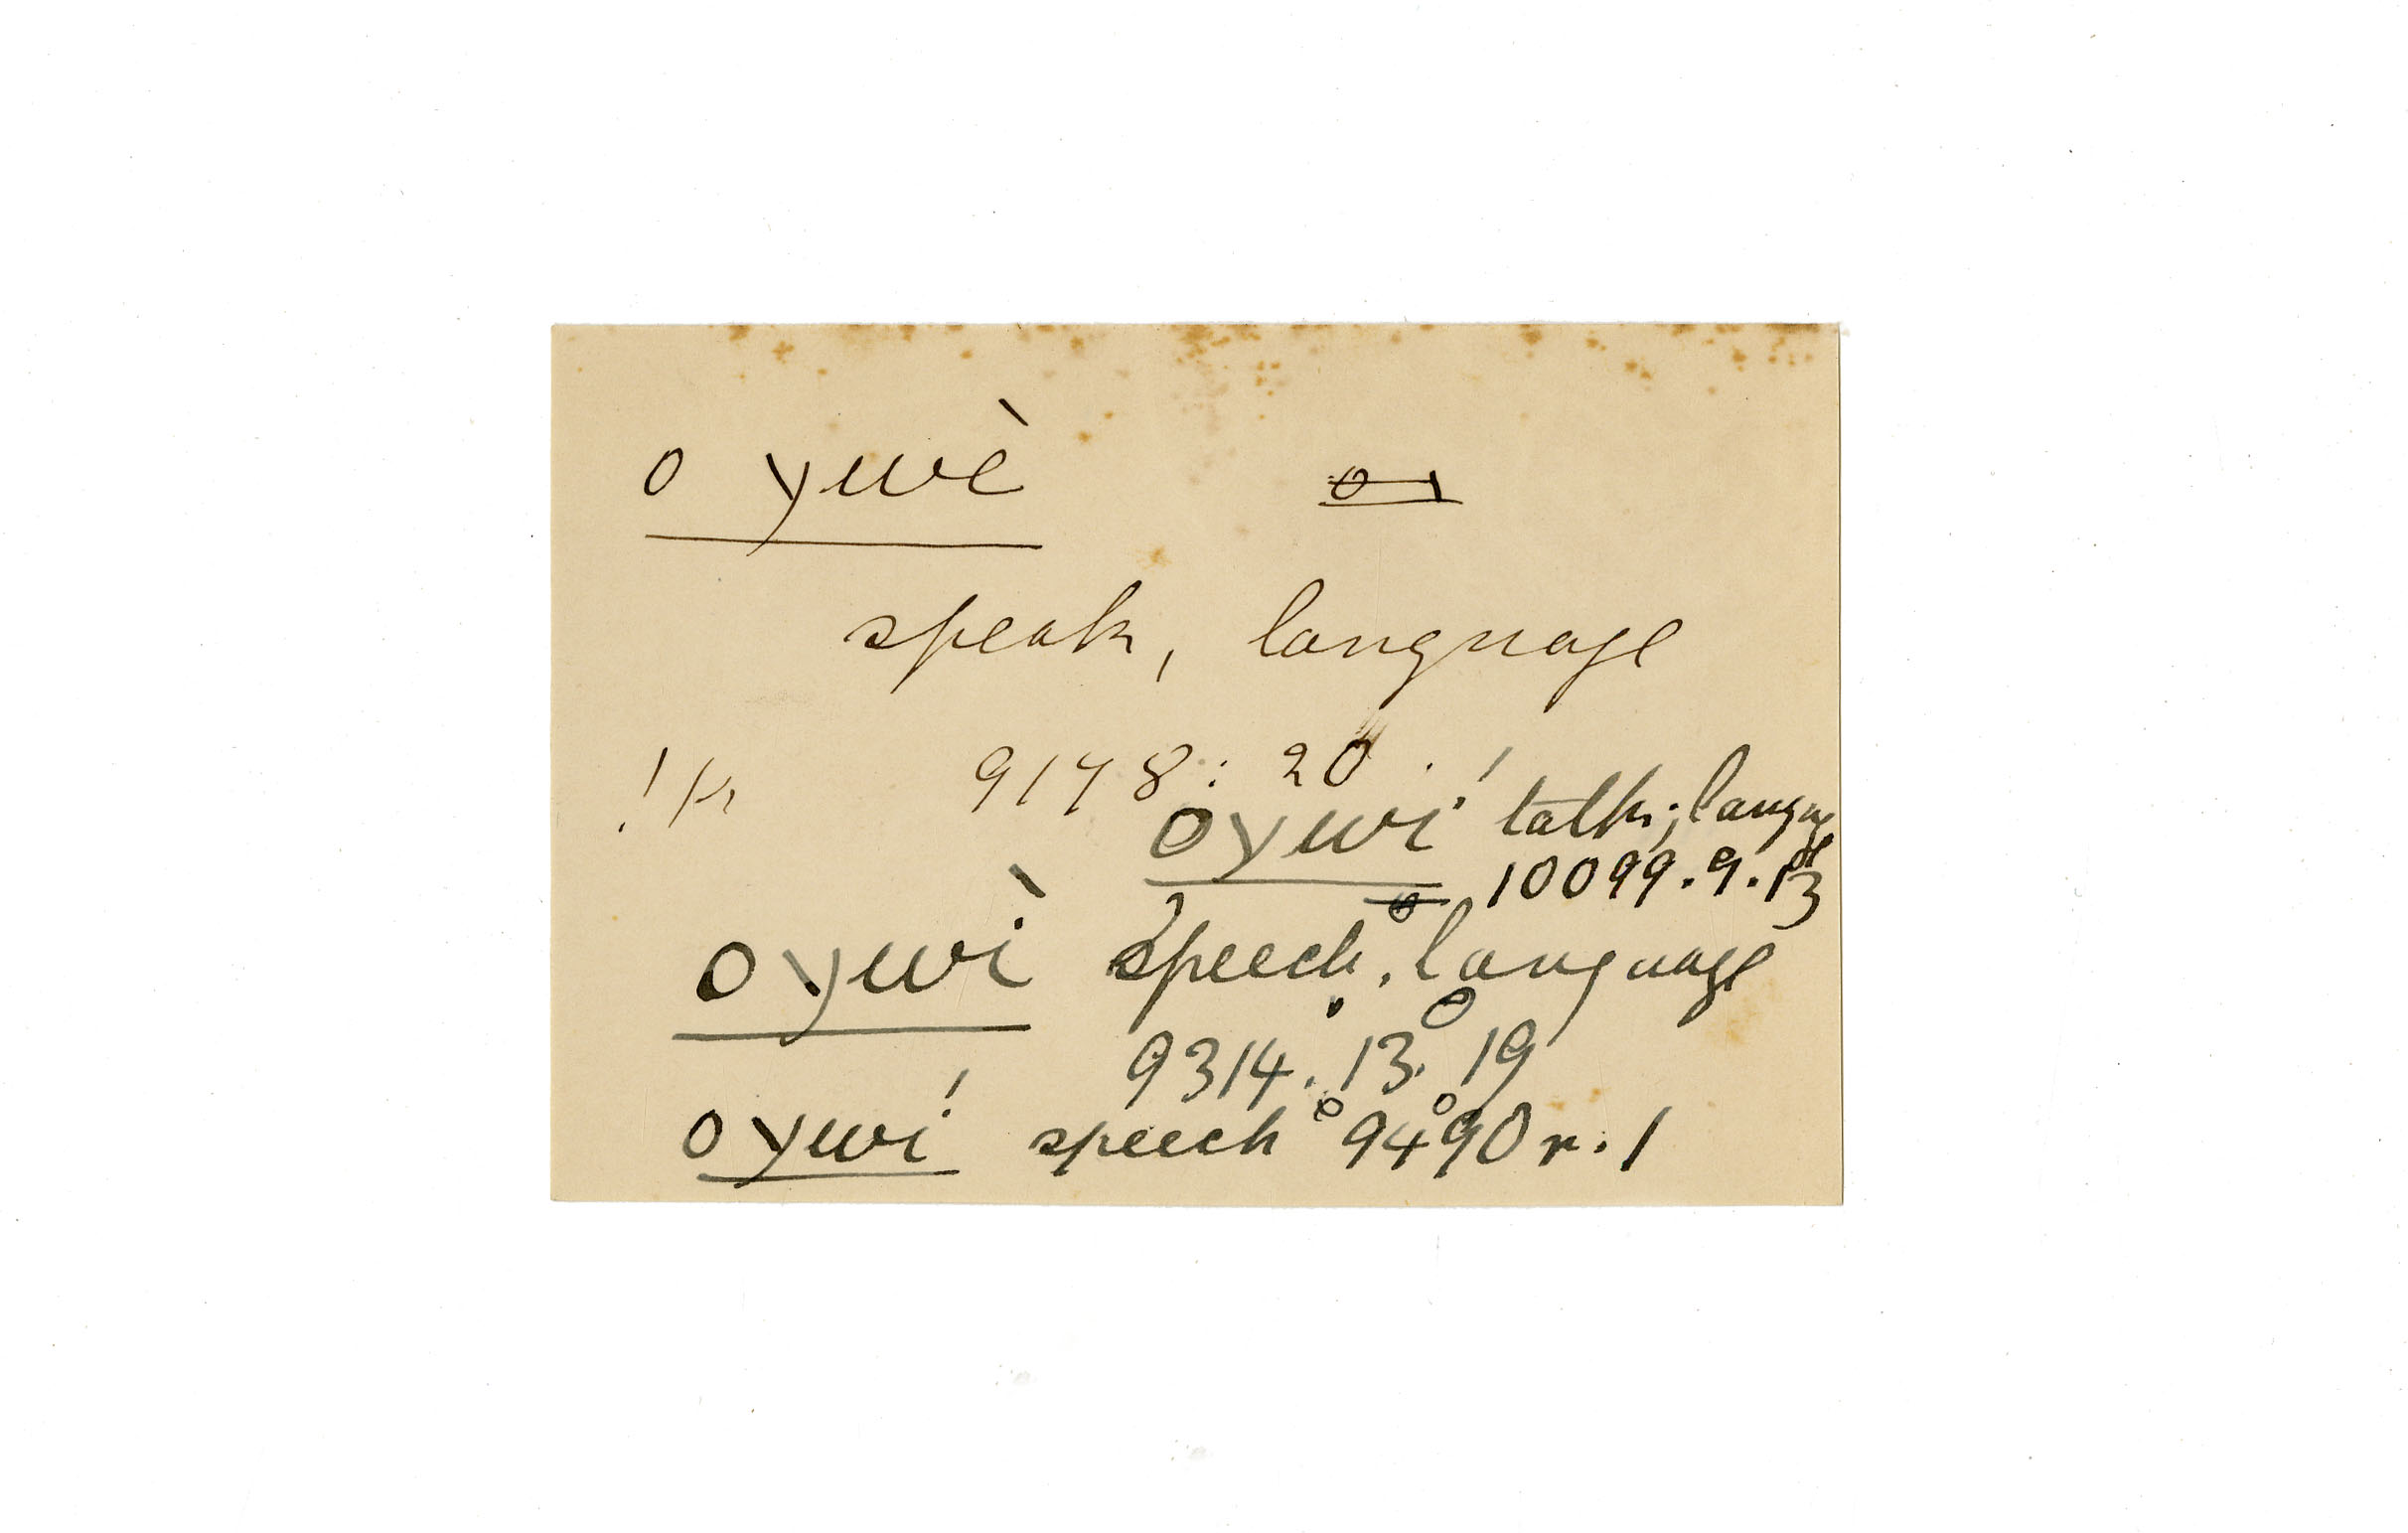 o ywè
speak, language
!k 9178:20.
oywí talk; language
10099.9.13
oywì speech, language
9314.13.19
oywí speech 9490 r. 1